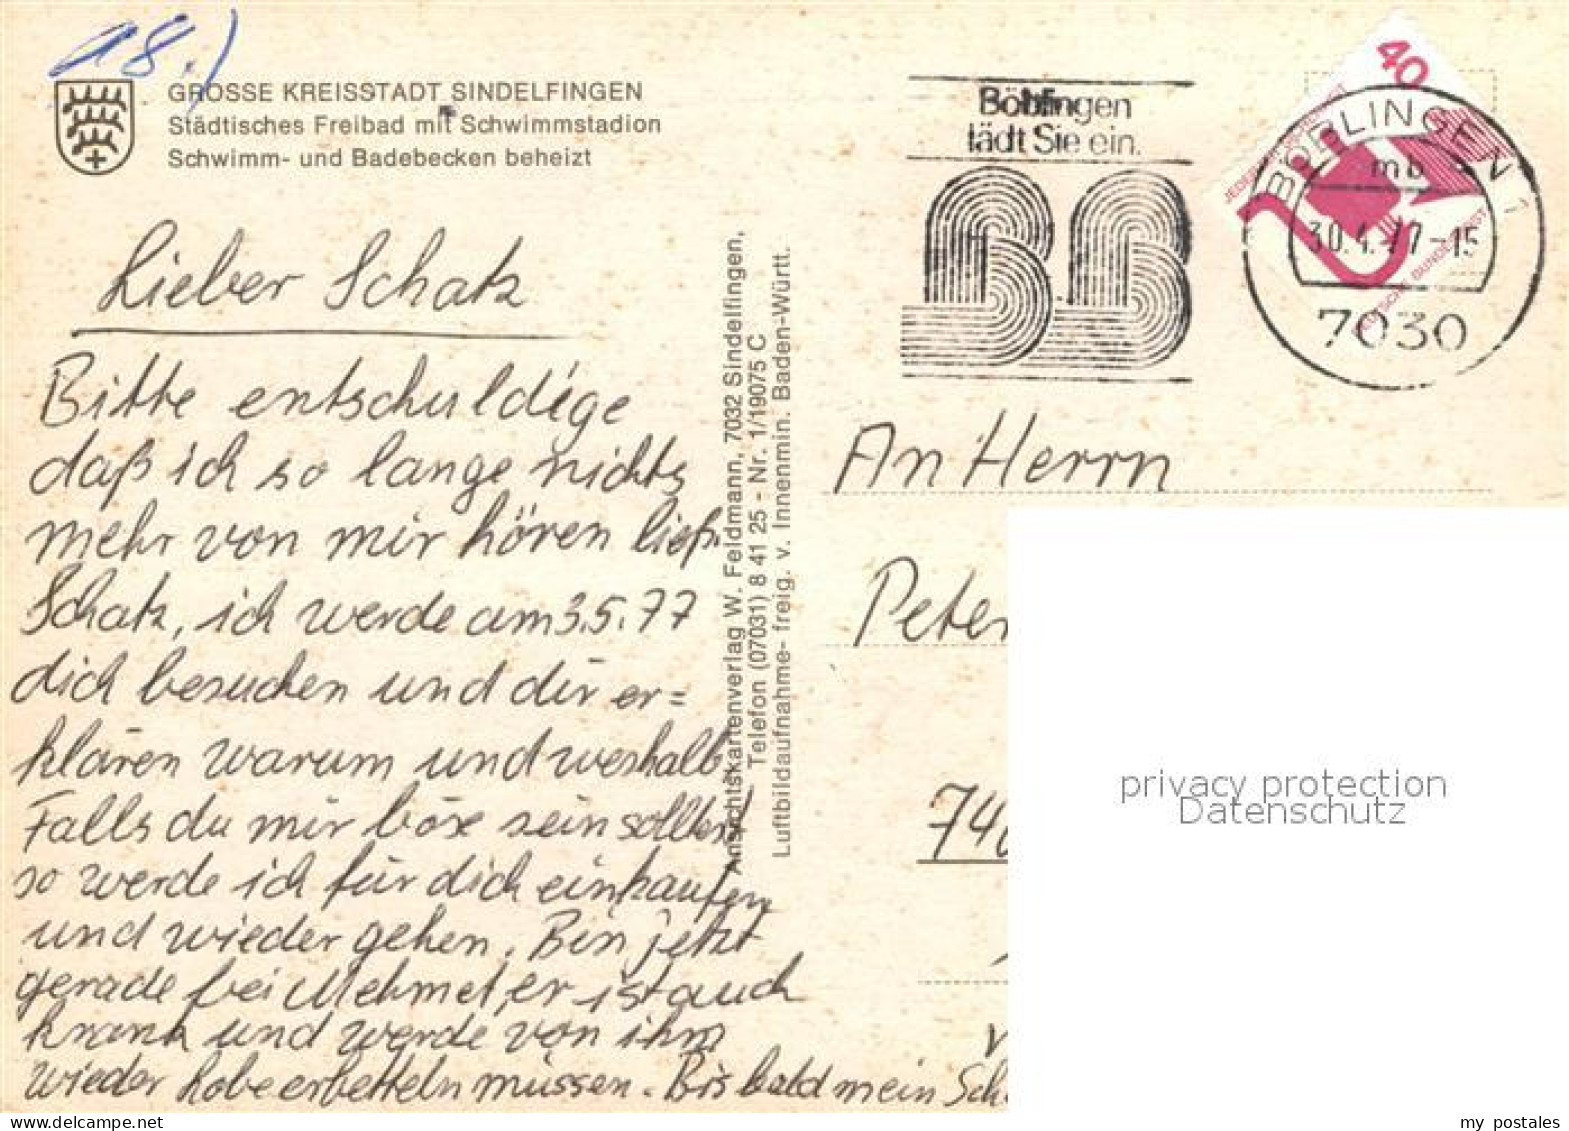 18.)
GROSSE KREISSTADT SINDELFINGEN
Städtisches Freibad mit Schwimmstadion
Schwimm- und Badebecken beheizt
Lieber Schatz
Bitte entschuldige
daß ich so lange nichts
mehr von mir hören ließ.
Schatz, ich werde am 3.5.77
dich besuchen und dir er=
klären warum und weshalb
Falls du mir böse sein solltest
so werde ich für dich einkaufen
und wieder gehen. Bin jetzt
gerade bei Mehmet, er ist auch
krank und werde von ihm
wieder erbetteln müssen. Bis bald mein Sch
Ansichtskartenverlag W. Feldmann, 7032 Sindelfingen,
Telefon (07031) 8 41 25 - Nr. 1/19075 C
Luftbildaufnahme- freig. v. Innenmin. Baden-Württ.
Böblingen
lädt Sie ein.
BB
40
DEUTSCHE BUNDESPOST
BÖBLINGEN 1
mb
30.4.77-15
7030
An Herrn
Peter
740
privacy protection
Datenschutz
my postales